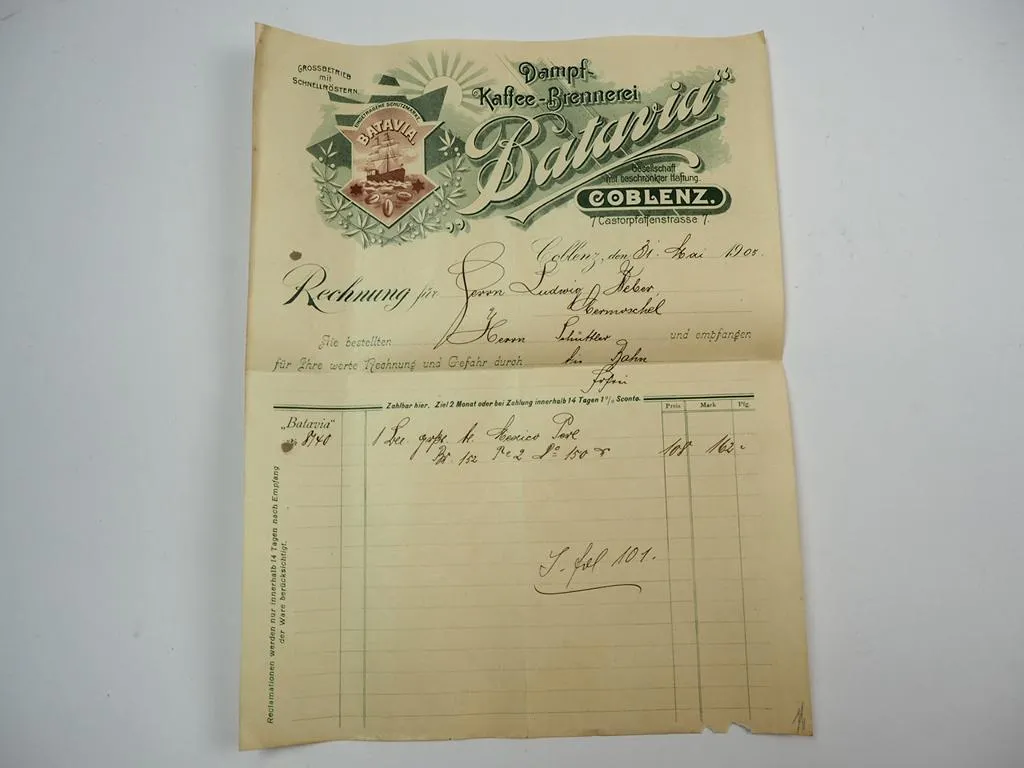 GROSSBETRIEB
mit
SCHNELLRÖSTERN.
EINGETRAGENE SCHUTZMARKE
BATAVIA.
Dampf-
Kaffee-Brennerei
„Batavia“
Gesellschaft
mit beschränkter Haftung.
COBLENZ.
7 Castorpfaffenstrasse 7.
Coblenz, den 31. Mai 1905.
Rechnung für Herrn Ludwig Weber,
Hermoschel
Die bestellten Herrn Schüttler und empfangen
für Ihre werte Rechnung und Gefahr durch die Bahn
Zahlbar hier. Ziel 2 Monat oder bei Zahlung innerhalb 14 Tagen 1% Sconto.
Preis Mark Pfg.
„Batavia“
8140 1 gebr. Mexico Perl
Br. 152 2 No 150 108 162 -
101.
Reclamationen werden nur innerhalb 14 Tagen nach Empfang
der Ware berücksichtigt.